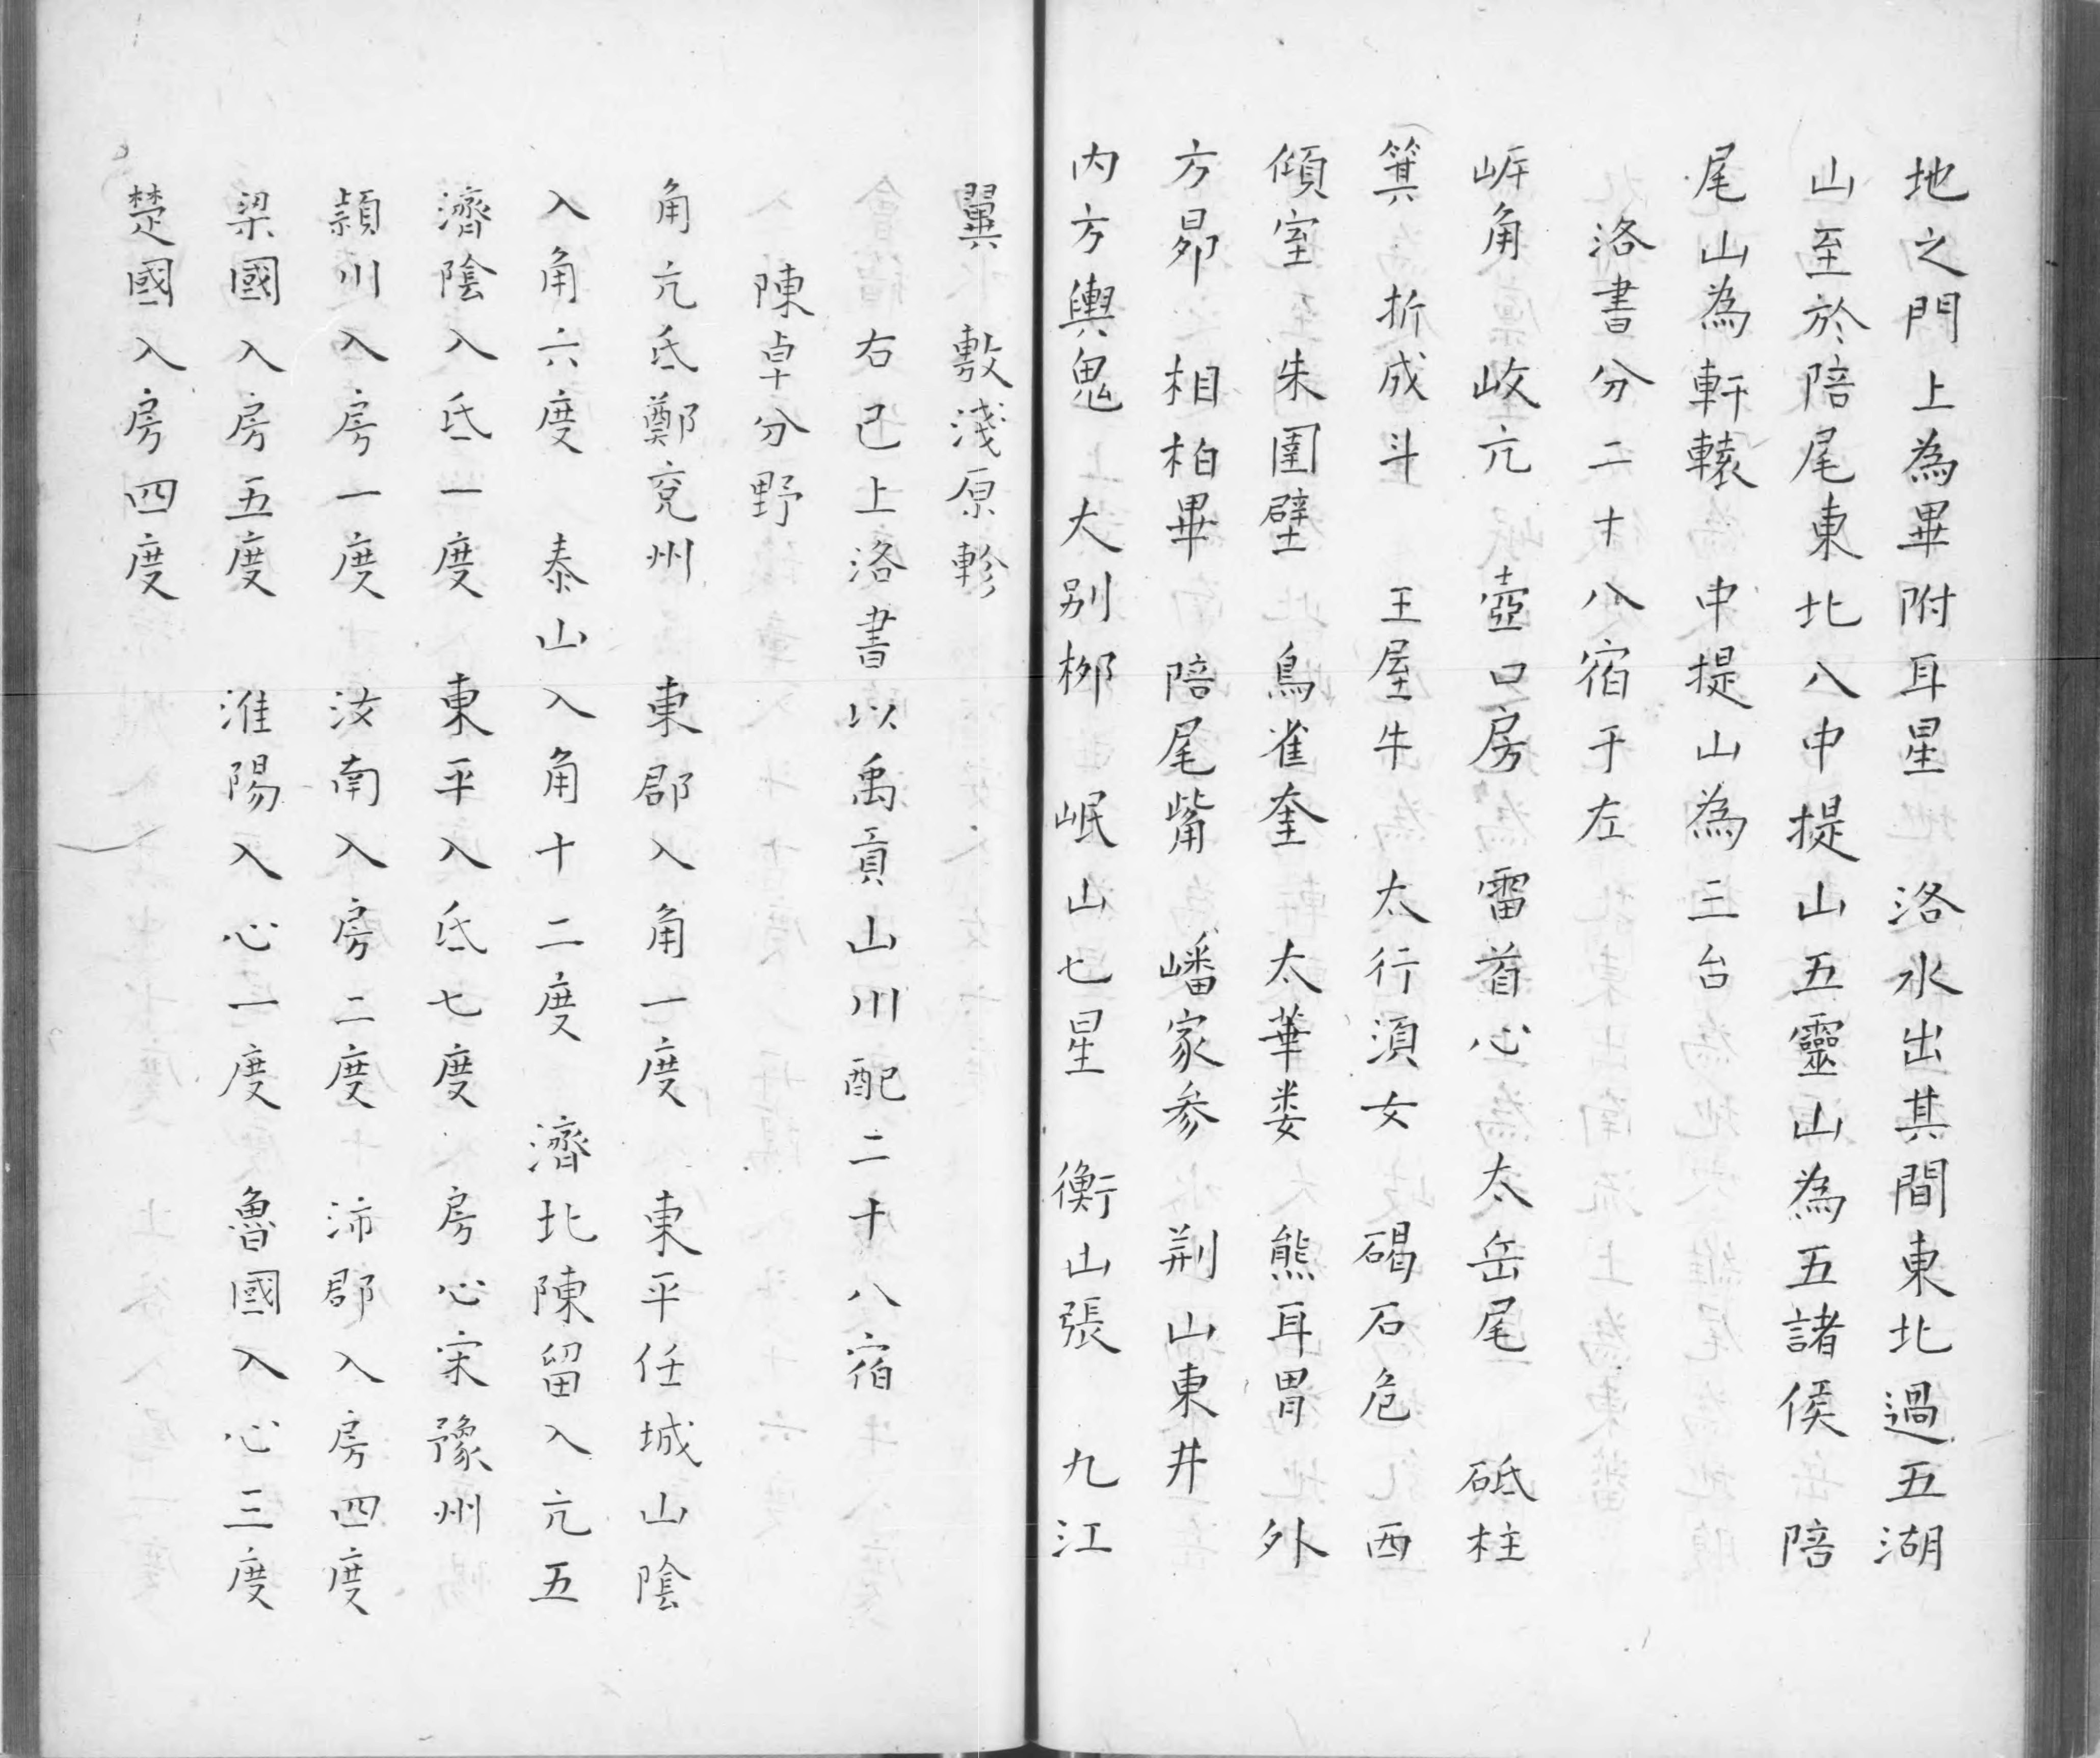 地之門上為畢附耳星　洛水出其間東北過五湖
山至於陪尾東北八申提山五靈山為五諸侯　陪
尾山為軒轅　申提山為三台
洛書分二十八宿于左
岍角　岐亢　壺口房　雷首心　太岳尾　砥柱
箕　析成斗　王屋牛　太行須女　碣石危　西
傾室　朱圉壁　鳥雀奎　太華婁　熊耳胃　外
方昴　相柏畢　陪尾觜　嶓冢参　荆山東井
内方輿鬼　大别栁　岷山七星　衡山張　九江
翼　敷淺原軫
右已上洛書以禹貢山川配二十八宿
陳卓分野
角亢氐鄭兗州　東郡入角一度　東平任城山陰
入角六度　泰山入角十二度　濟北陳留入亢五
濟陰入氐一度　東平入氐七度　房心宋豫州
潁川入房一度　汝南入房二度　沛郡入房四度
梁國入房五度　淮陽入心一度　魯國入心三度
楚國入房四度